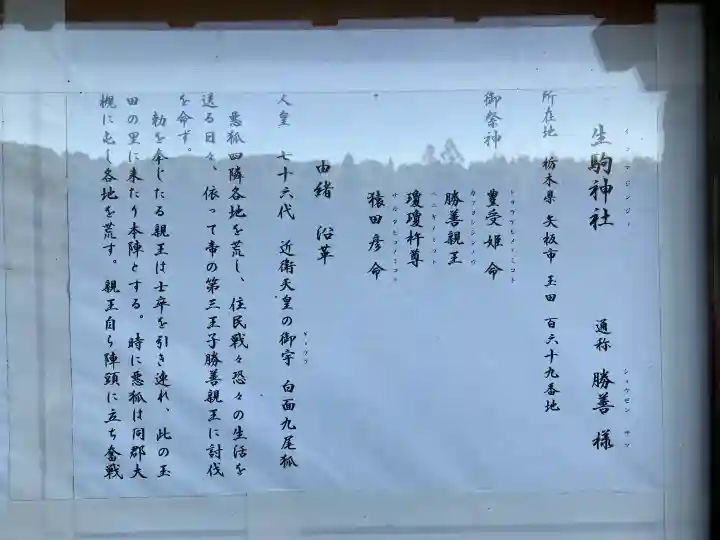 生駒神社 通称 勝善様
シヨウゼン サマ
所在地 栃木県 矢板市 玉田 百六十九番地
御祭神 豊受姫命
勝善親王
瓊瓊杵尊
猿田彦命
由緒 沿革
人皇 七十六代 近衛天皇の御宇 白面九尾狐
悪狐四隣各地を荒し、住民戦々恐々の生活を
送る日々、依って帝の第三王子勝善親王に討伐
を命ず。
勅を奉じたる親王は士卒を引き連れ、此の玉
田の里に来たり本陣とする。時に悪狐は同郡大
槻に屯し各地を荒す。親王自ら陣頭に立ち奮戦